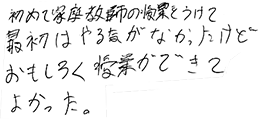 初めて家庭教師の授業をうけて
最初はやる気がなかったけど
おもしろく授業ができて
よかった。